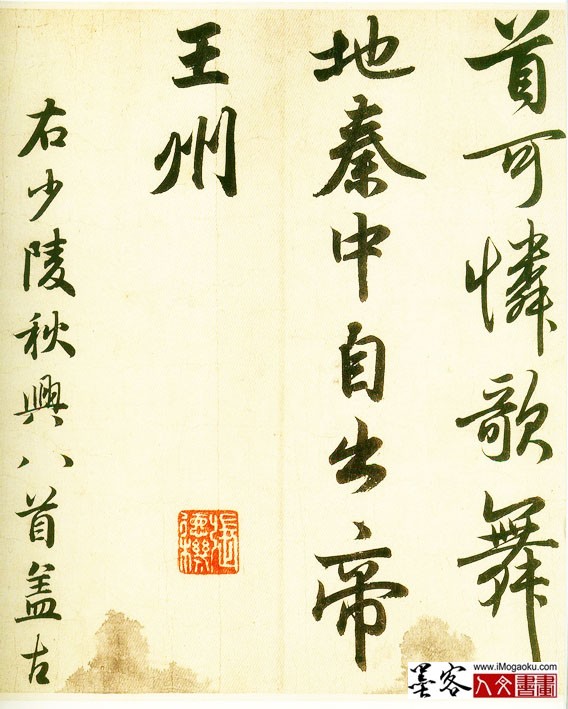 首可憐歌舞
地秦中自古帝
王州
右少陵秋興八首盖古
張德機
墨客
www.iMogaoku.com
人文書畫